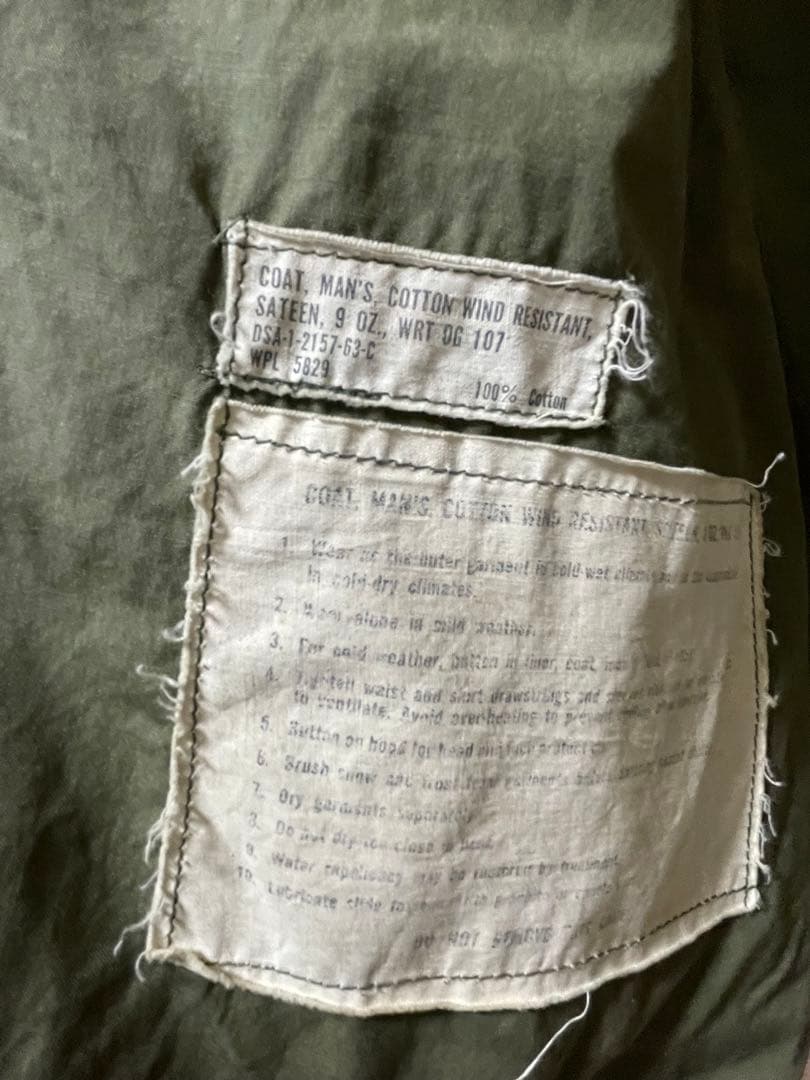 COAT, MAN'S, COTTON WIND RESISTANT,
SATEEN, 9 OZ., WRT OG 107
DSA-1-2157-63-C
WPL 5829
100% Cotton
COAT, MAN'S, COTTON WIND RESISTANT
1. Wear as the outer garment in cold-wet
in cold-dry climates.
2. Wear alone in mild weather.
3. For cold weather, button in liner, coat,
4. Tighten waist and skirt drawstrings and
to ventilate. Avoid over-heating to prevent
5. Button on hood for head and face protection
6. Brush snow and frost from garments before
7. Dry garments separately.
8. Do not dry too close to heat.
9. Water repellency may be restored by treatment.
10. Lubricate slide
DO NOT REMOVE THIS